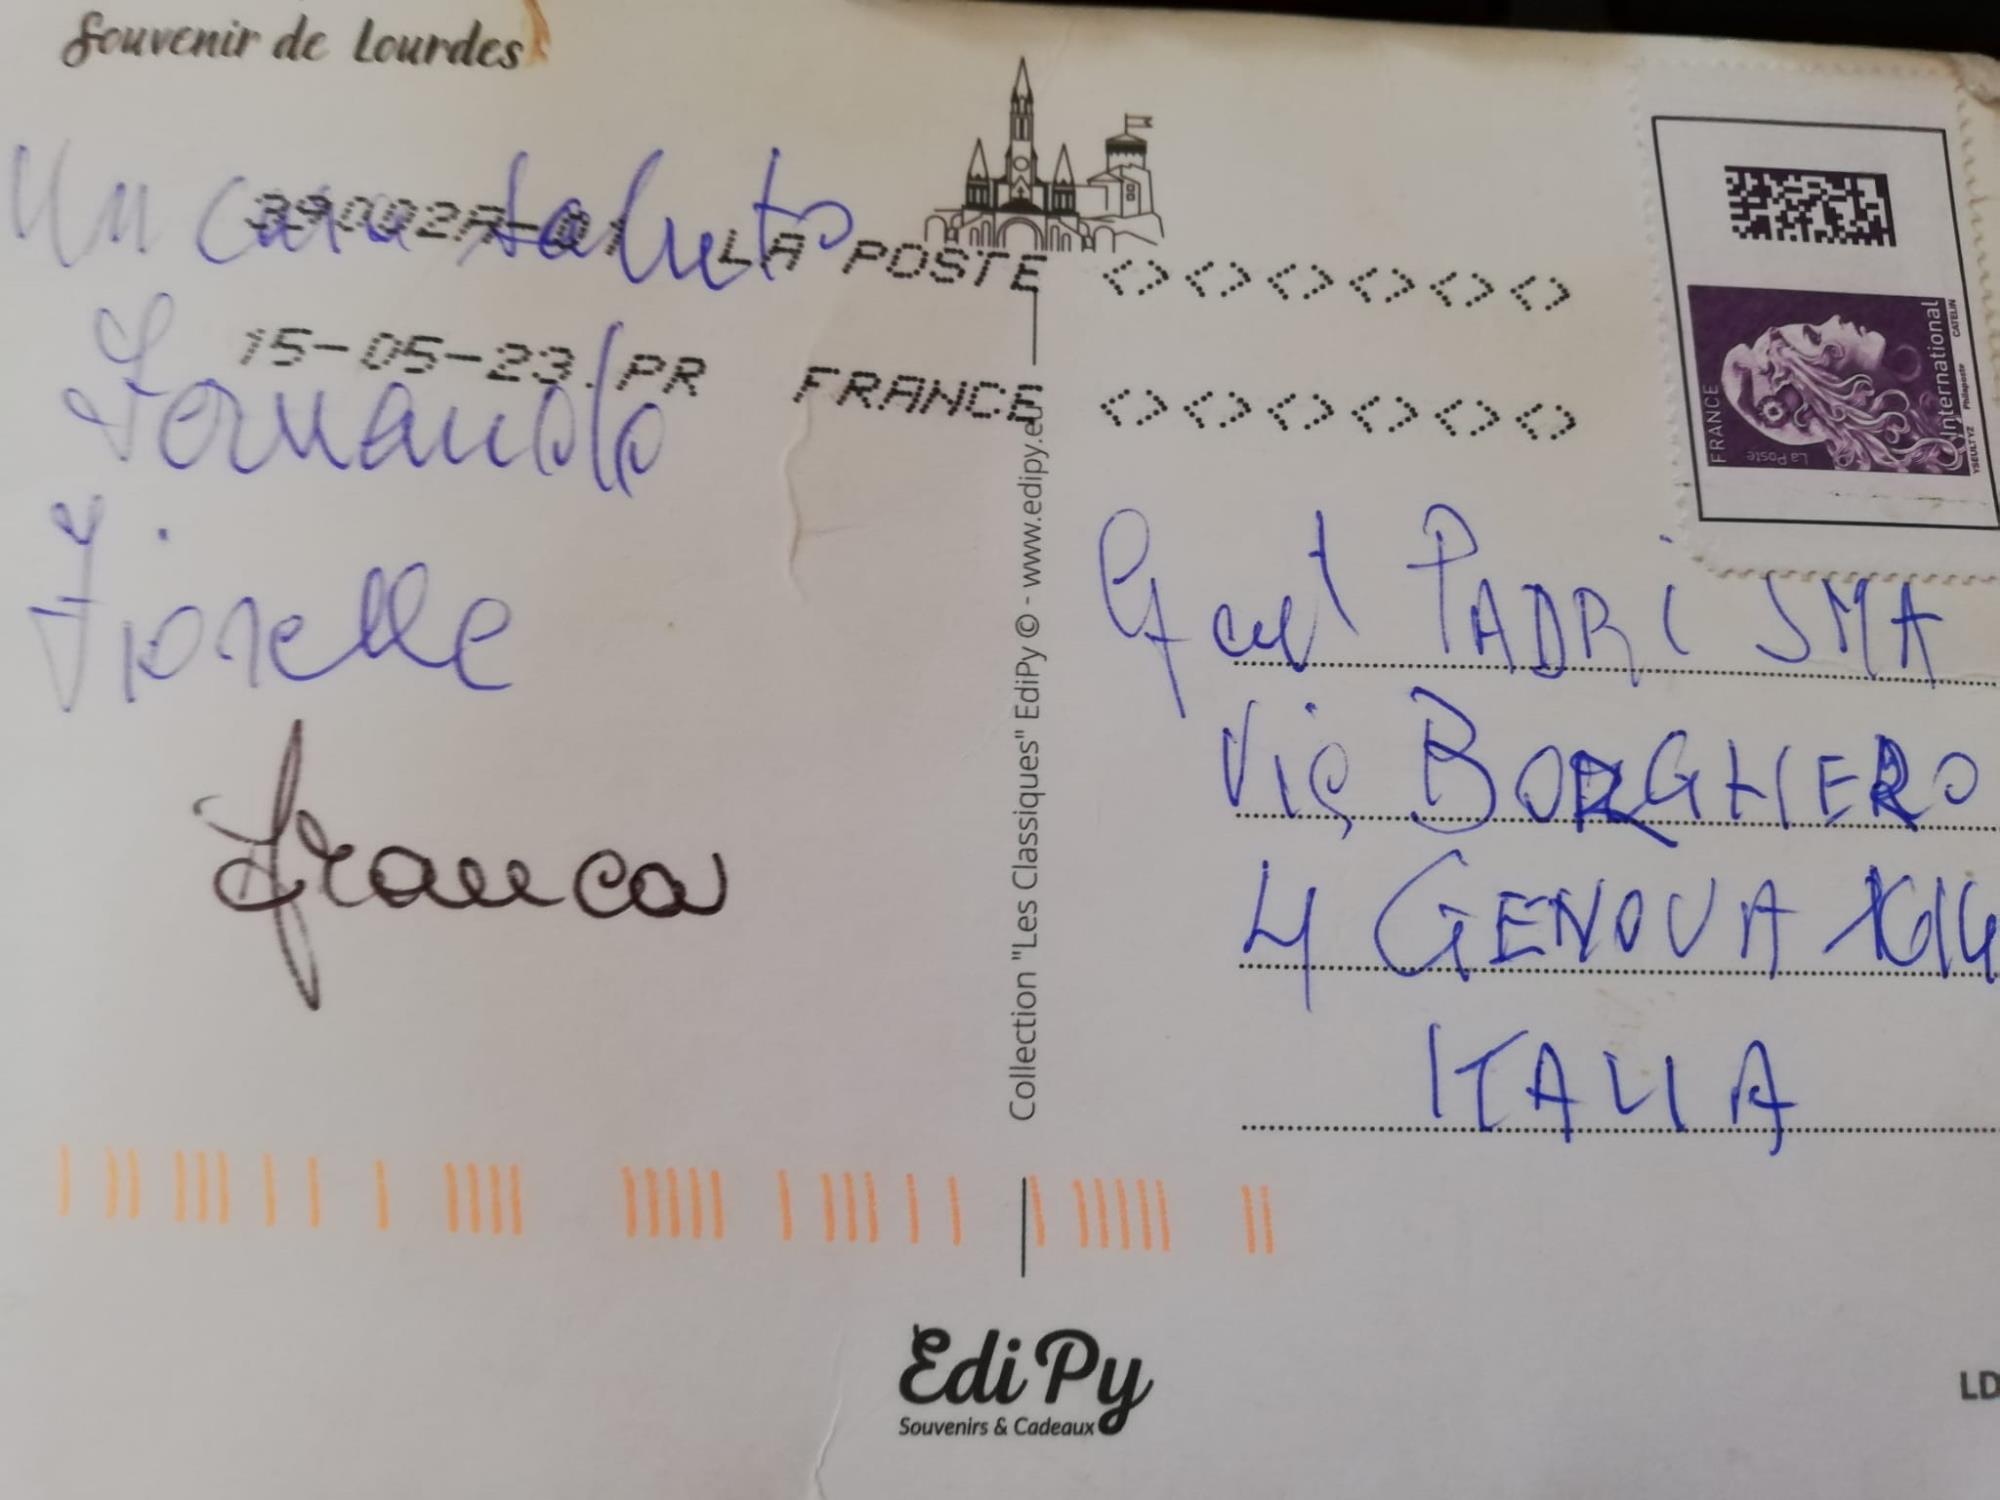 Souvenir de Lourdes
Un caro saluto
39002A-01 LA POSTE
15-05-23 PR FRANCE
Fernando
Fiorella
Franca
Collection "Les Classiques" EdiPy © - www.edipy.eu
FRANCE
La Poste
International
YSEULT YZ Philaposte CATELIN
PADRI SMA
Via BORGHERO
4 GENOVA
ITALIA
Edi Py
Souvenirs & Cadeaux
LD